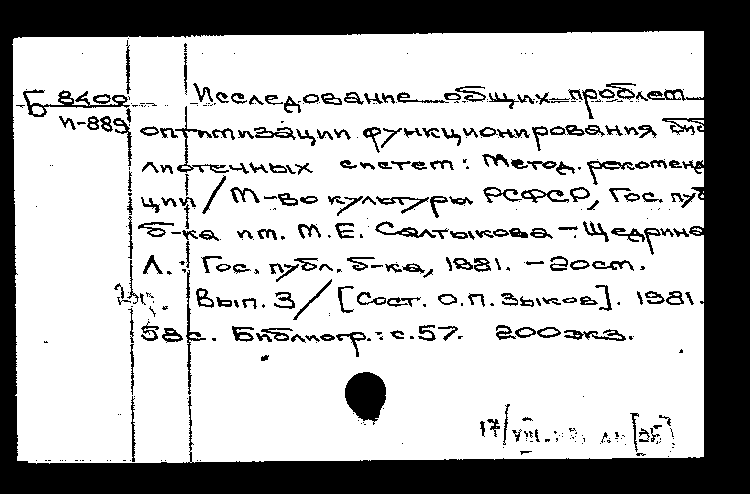 Б 8400
И-889
Исследование общих проблем
оптимизации функционирования биб
лиотечных систем: Метод. рекоменда
ции / М-во культуры РСФСР, Гос. пуб
б-ка им. М.Е. Салтыкова-Щедрина
Л.: Гос. публ. б-ка, 1981. - 20см.
Вып. 3 / [Сост. О.П. Зыков]. 1981.
58с. Библиогр.: с.57. 200экз.
17/VIII